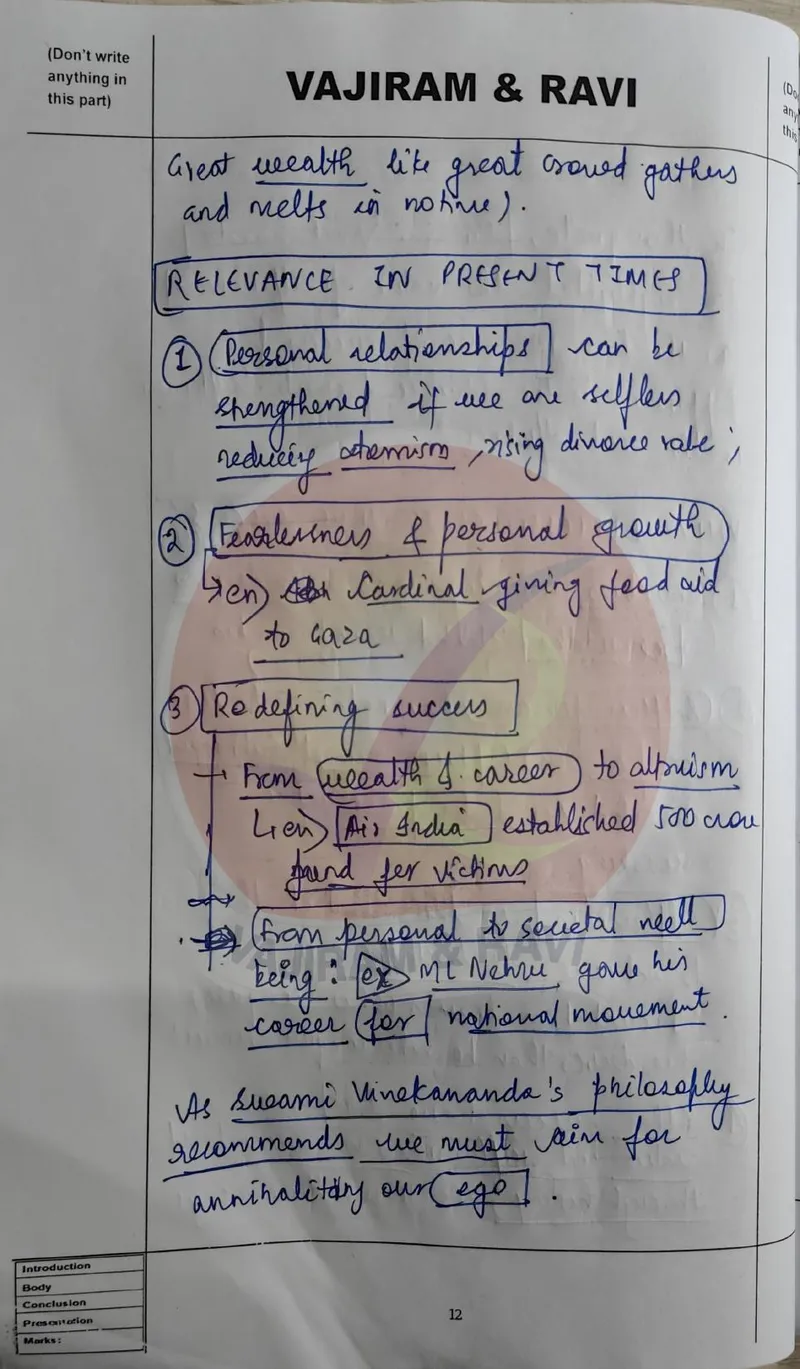 (Don't write
anything in
this part)
VAJIRAM & RAVI
(Do
any
this
Great wealth like great crowd gathers
and melts in no time).
RELEVANCE IN PRESENT TIMES
① Personal relationships can be
strengthened if we are selfless
reducing atomism, rising divorce rate;
② Fearlessness & personal growth
↳ ex) Cardinal giving food aid
to Gaza
③ Redefining success
→ From wealth & career to altruism
↳ ex) Air India established 500 crore
fund for victims
→ From personal to societal well
being: ex) ML Nehru gave his
career for national movement.
As Swami Vivekananda's philosophy
recommends we must aim for
annihaliting our ego.
VAJIRAM & RAVI
Introduction
Body
Conclusion
Presentation
Marks:
12